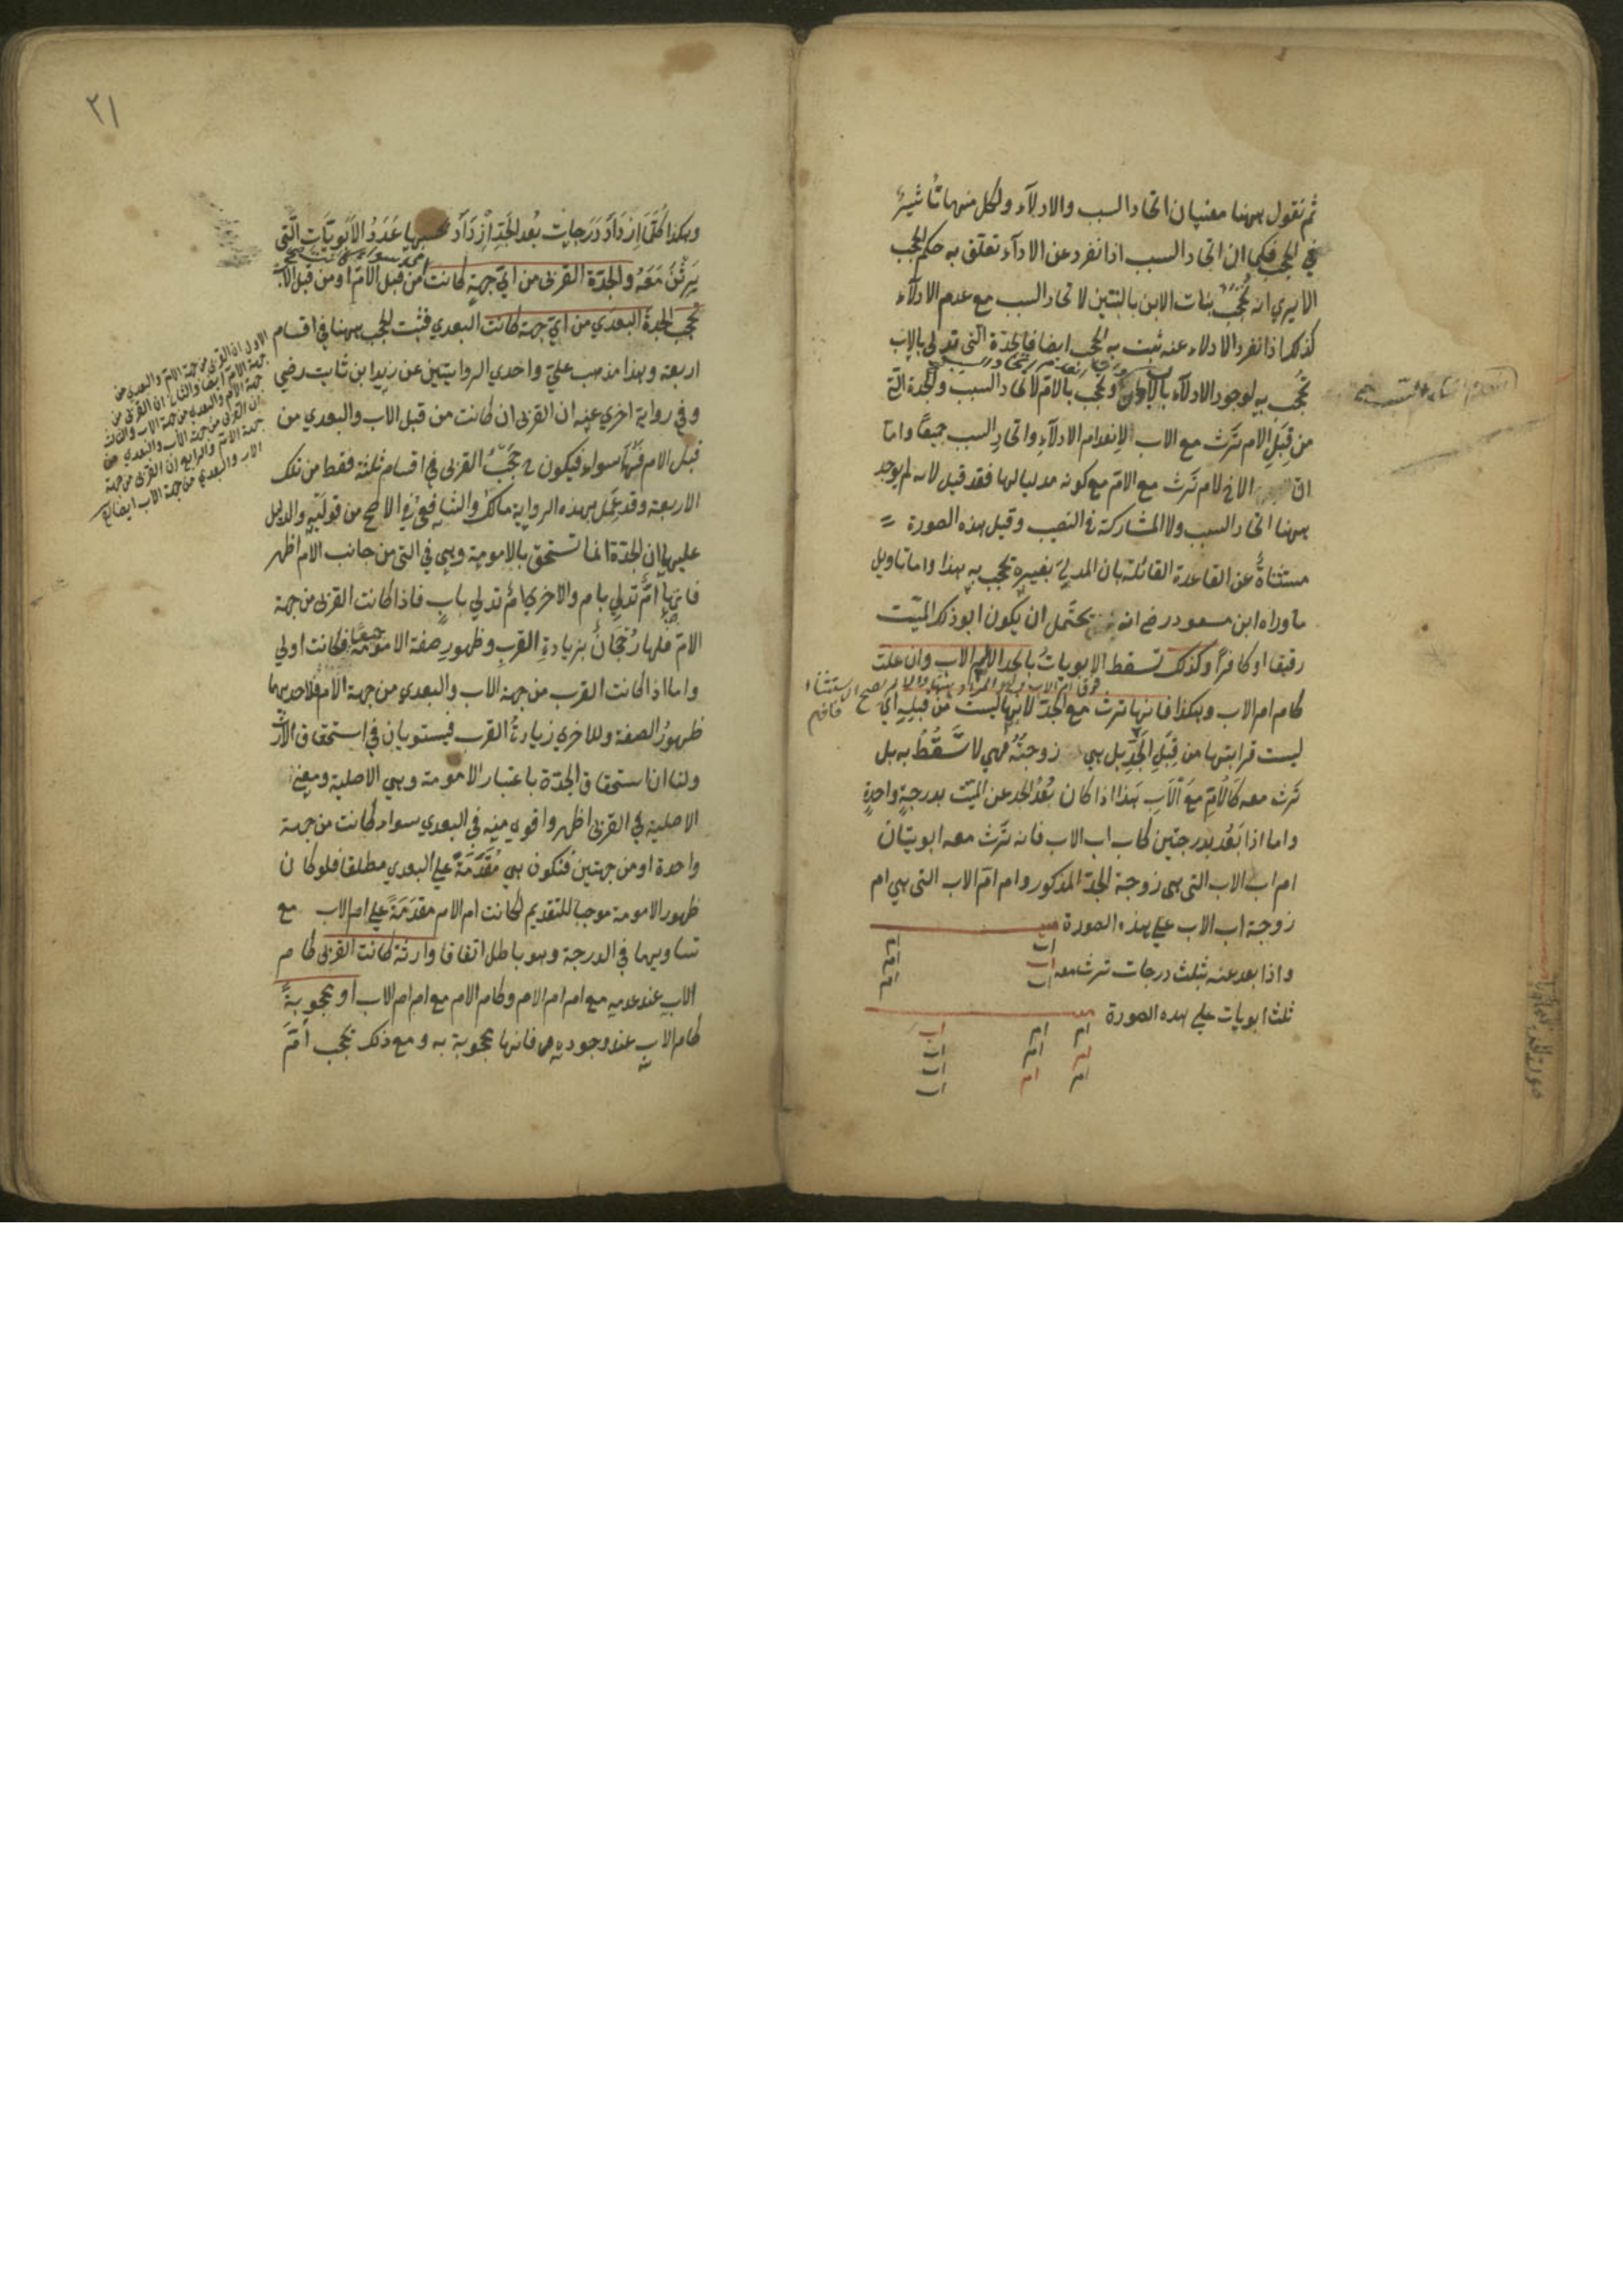 ثم نقول ههنا معنيان اتحاد السبب والادلاء ولكل منهما تأثير
في الحجب فكما ان اتحاد السبب اذا انفرد عن الادلاء تعلق به حكم الحجب
الا يري انه تحجب بنات الابن بالبنتين لاتحاد السبب مع عدم الادلاء
كذلك اذا انفرد الادلاء عنه ثبت به الحجب ايضا فالجدة التي تدلي بالاب
تحجب به لوجود الادلاء وتحجب بالام لاتحاد السبب والجدة التي
من قبل الام ترث مع الاب لانعدام الادلاء واتحاد السبب جميعا واما
ان الاخ لام ترث مع الام مع كونه مدليا لها فقد قيل لانه لم يوجد
ههنا اتحاد السبب ولا المشاركة في النصيب وقيل هذه الصورة
مستثناة عن القاعدة القائلة بان المدلي بغيره يحجب به هذا واما تاويل
ما وراه ابن مسعود رضي انه يحتمل ان يكون ابو ذلك الميت
رقيقا او كافرا وكذلك تسقط الابويات بالجد الا ام الاب وان علت
كام ام الاب وهكذا فانها ترث مع الجد لانها ليست من قبله اي
ليست قرابتها من قبل الجد بل هي زوجته فهي لا تسقط به بل
ترث معه كالام مع الاب هذا اذا كان بعد الجد عن الميت بدرجة واحدة
واما اذا بعد بدرجتين كاب اب الاب فانه ترث معه ابويتان
ام اب الاب التي هي زوجة الجد المذكور وام ام الاب التي هي ام
زوجة اب الاب علي هذه الصورة ميت
اب ام
اب ام
اب ام
واذا بعد عنه بثلث درجات ترث معه
ثلث ابويات علي هذه الصورة ميت
ام ام اب
ام ام اب
ام ام اب
اب
٢١
وهكذا كلما ازداد درجات بعد الجد ازداد بحسبها عدد الابويات التي
يرثن معه والجدة القربي من اي جهة كانت من قبل الام او من قبل الاب
تحجب الجدة البعدي من اي جهة كانت البعدي فثبت الحجب ههنا في اقسام
اربعة وهذا مذهب علي واحدي الروايتين عن زيد ابن ثابت رضي
وفي رواية اخري عنه ان القربي ان كانت من قبل الاب والبعدي من
قبل الام فهما سواء فيكون ح حجب القربي في اقسام ثلثة فقط من تلك
الاربعة وقد عمل بهذه الرواية مالك والشافعي في الاصح من قوليه والدليل
عليها ان الجدة انما تستحق بالامومة وهي في التي من جانب الام اظهر
فانها ام تدلي بام والاخري ام تدلي باب فاذا كانت القربي من جهة
الام فلها رجحان بزيادة القرب وظهور صفة الامومة جميعا فكانت اولي
واما اذا كانت القرب من جهة الاب والبعدي من جهة الام فلاحديهما
ظهور الصفة وللاخري زيادة القرب فيستويان في استحقاق الارث
ولنا ان استحقاق الجدة باعتبار الامومة وهي الاصلية ومعني
الاصلية في القربي اظهر واقوي منه في البعدي سواء كانت من جهة
واحدة او من جهتين فتكون هي مقدمة علي البعدي مطلقا فلو كان
ظهور الامومة موجبا للتقديم لكانت ام الام مقدمة علي ام الاب مع
تساويهما في الدرجة وهو باطل اتفاقا وارثة كانت القربي كام
الاب عند عدمه مع ام ام الام وكام الام مع ام ام الاب او محجوبة
كام الاب عند وجوده فانها محجوبة به ومع ذلك تحجب ام
الاول ان القربي من جهة الام والبعدي من
جهة الام ايضا والثاني ان القربي من
جهة الام والبعدي من جهة الاب والثالث
ان القربي من جهة الاب والبعدي من
جهة الام والرابع ان القربي من جهة
الاب والبعدي من جهة الاب ايضا